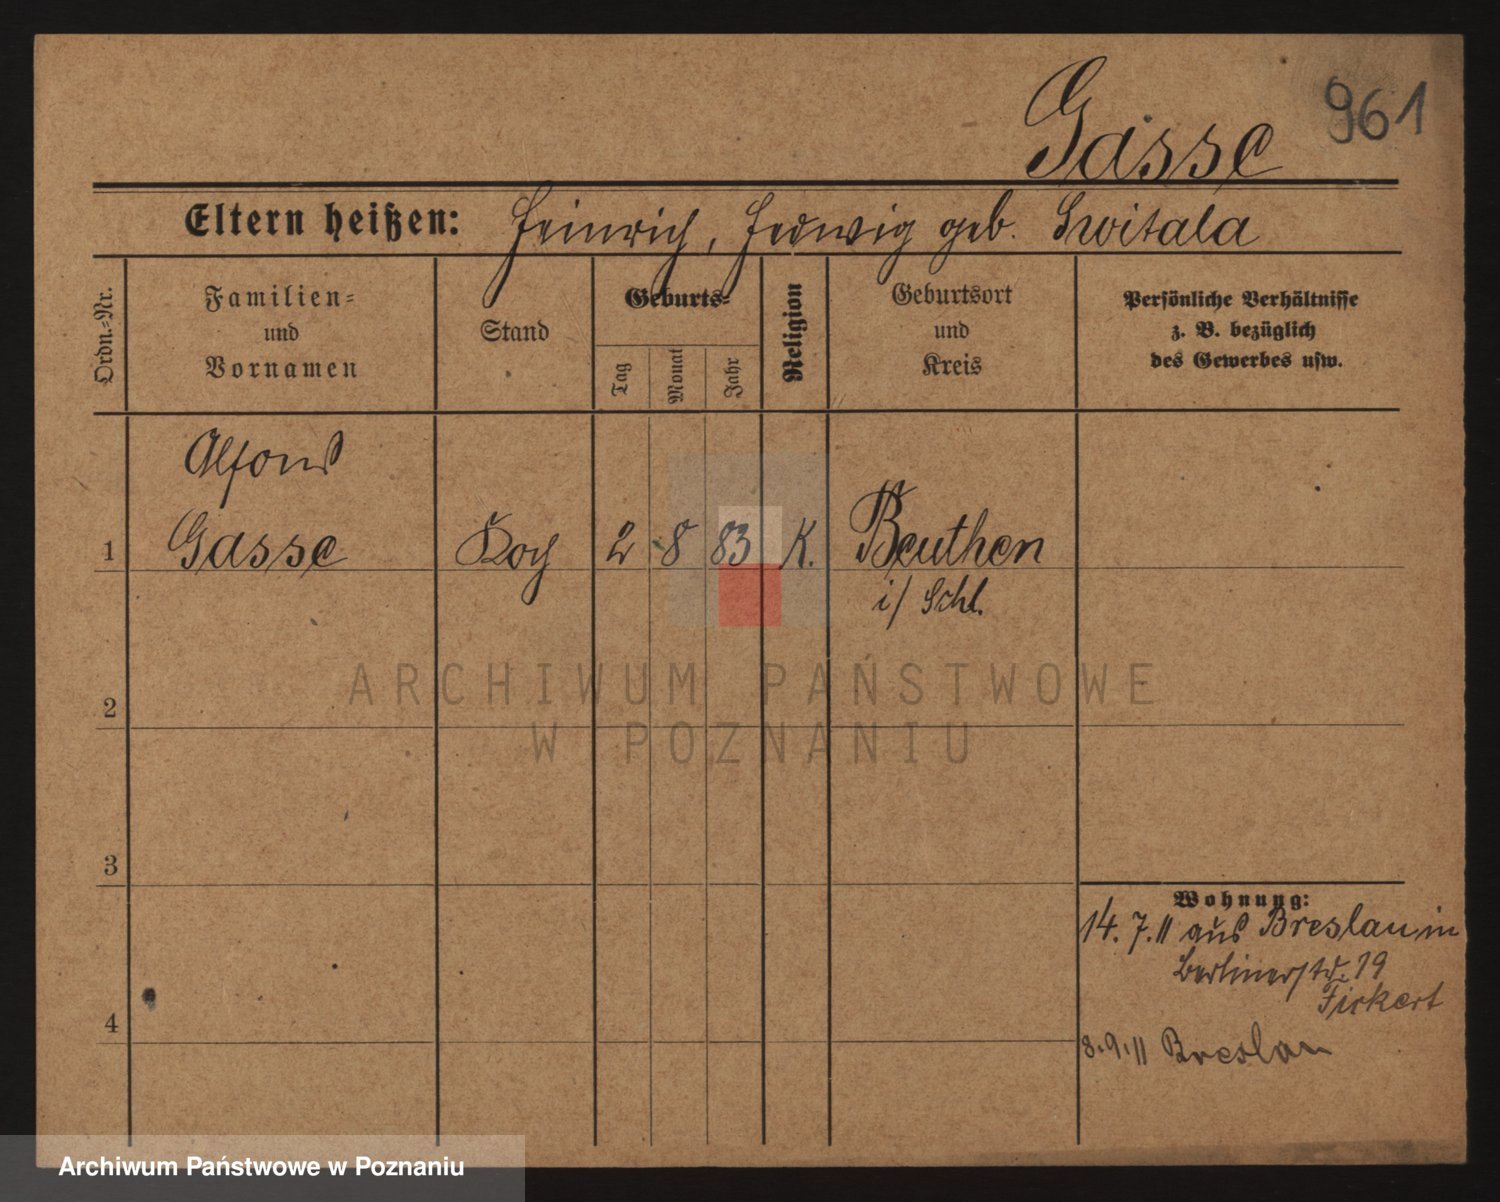 961
Gasse
Eltern heißen: Heinrich, Hedwig geb. Switala
Ordn.-Nr.
Familien-
und
Vornamen
Stand
Geburts-
Tag
Monat
Jahr
Religion
Geburtsort
und
Kreis
Persönliche Verhältnisse
z. B. bezüglich
des Gewerbes usw.
Alfons
1 Gasse Koch 2 8 83 K. Beuthen
i/ Schl.
ARCHIWUM PAŃSTWOWE
W POZNANIU
2
3
Wohnung:
14.7.11 aus Breslau in
Berlinerstr. 19
Fickert
4
8.9.11 Breslau
Archiwum Państwowe w Poznaniu